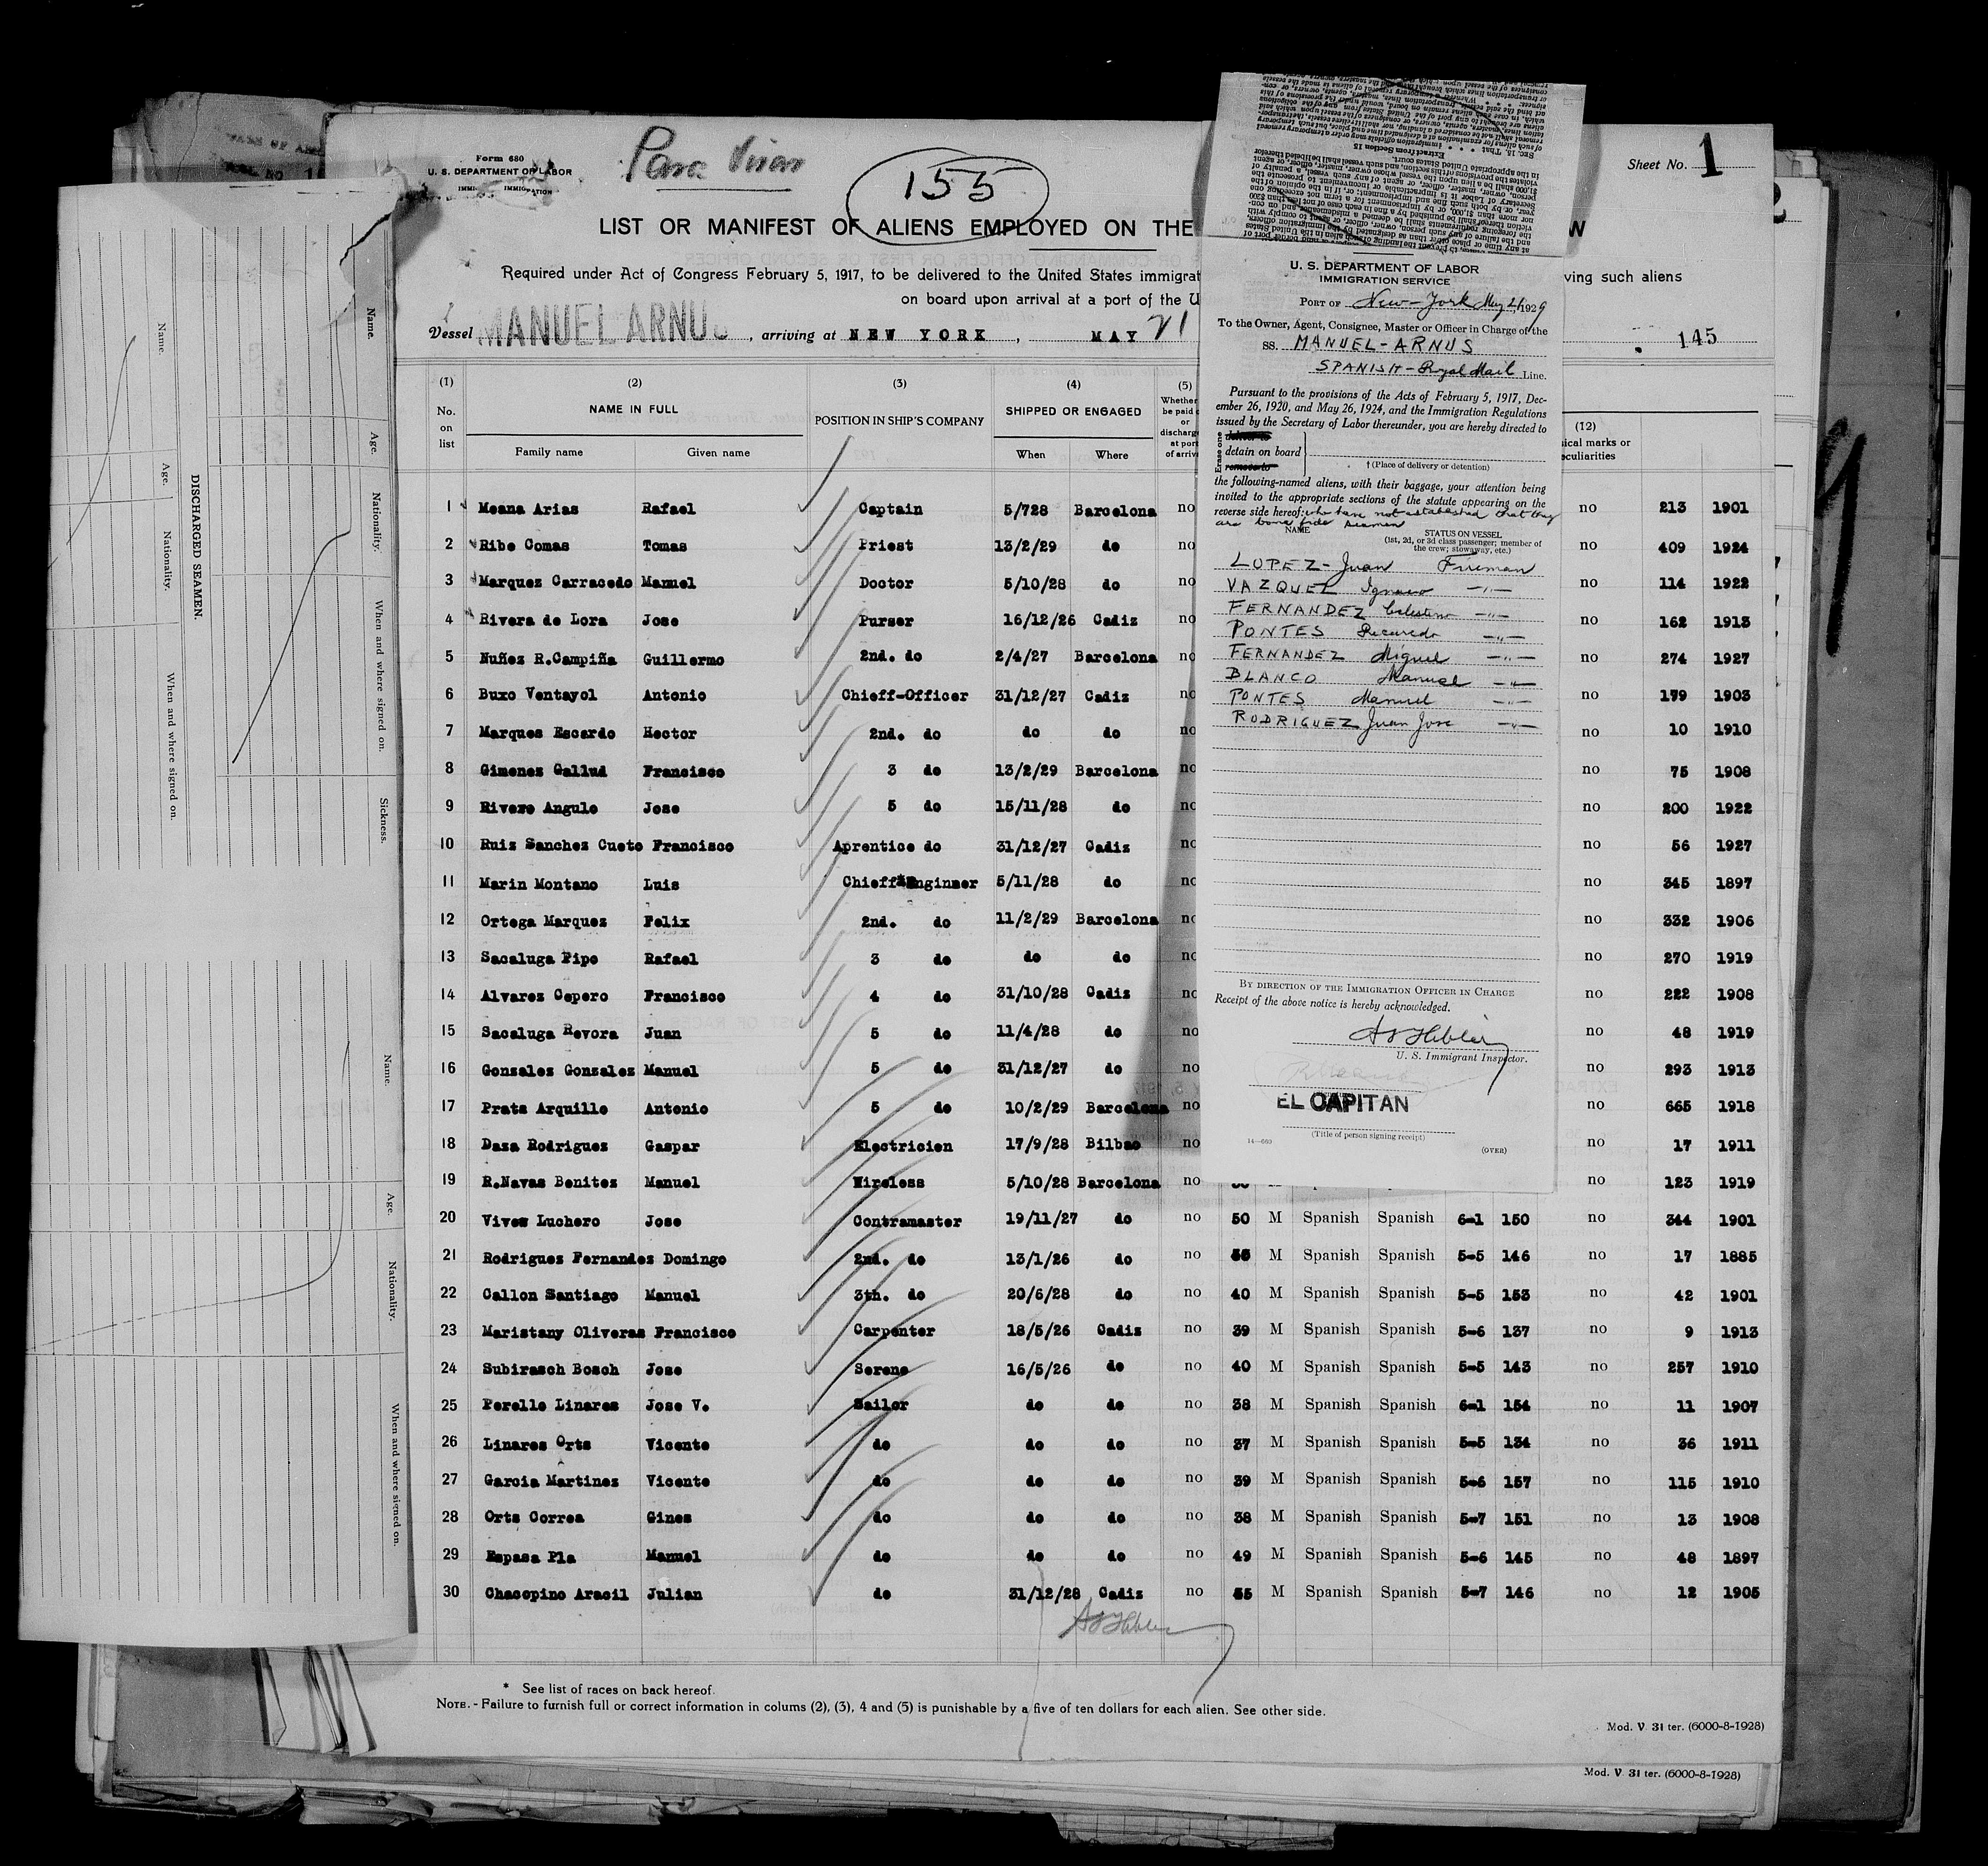 Form 680
U. S. DEPARTMENT OF LABOR
155
Sheet No. 1
2
LIST OR MANIFEST OF ALIENS EMPLOYED ON THE
W
Required under Act of Congress February 5, 1917, to be delivered to the United States immigrat
ving such aliens
on board upon arrival at a port of the U
Vessel MANUEL ARNUS, arriving at NEW YORK, MAY 21
145
(1) (2) (3) (4) (5) (12)
No. on list NAME IN FULL POSITION IN SHIP'S COMPANY SHIPPED OR ENGAGED
Family name Given name When Where
Whether
be paid
or
discharg
at port
of arriv
sical marks or
eculiarities
1 Meana Arias Rafael Captain 5/728 Barcelona no no 213 1901
2 Ribe Comas Tomas Priest 13/2/29 do no no 409 1924
3 Marquez Carracedo Manuel Doctor 5/10/28 do no no 114 1922
4 Rivera de Lora Jose Purser 16/12/26 Cadiz no no 162 1913
5 Nuñez R.Campiña Guillermo 2nd. do 2/4/27 Barcelona no no 274 1927
6 Buxo Ventayol Antonio Chieff-Officer 31/12/27 Cadiz no no 179 1903
7 Marques Escardo Hector 2nd. do do do no no 10 1910
8 Gimenez Gallud Francisco 3 do 13/2/29 Barcelona no no 75 1908
9 Rivero Angulo Jose 5 do 15/11/28 do no no 200 1922
10 Ruiz Sanchez Cueto Francisco Aprentice do 31/12/27 Cadiz no no 56 1927
11 Marin Montano Luis Chieff Enginner 5/11/28 do no no 345 1897
12 Ortega Marquez Felix 2nd. do 11/2/29 Barcelona no no 332 1906
13 Sacaluga Pipo Rafael 3 do do do no no 270 1919
14 Alvarez Cepero Francisco 4 do 31/10/28 Cadiz no no 222 1908
15 Sacaluga Revora Juan 5 do 11/4/28 do no no 48 1919
16 Gonzales Gonzales Manuel 5 do 31/12/27 do no no 293 1913
17 Prats Arquillo Antonio 5 do 10/2/29 Barcelona no no 665 1918
18 Daza Rodriguez Gaspar Electricien 17/9/28 Bilbao no no 17 1911
19 R.Navas Benitez Manuel Wireless 5/10/28 Barcelona no no 123 1919
20 Vives Luchoro Jose Contramaster 19/11/27 do no 50 M Spanish Spanish 6-1 150 no 344 1901
21 Rodriguez Fernandez Domingo 2nd. do 13/1/26 do no 56 M Spanish Spanish 5-5 146 no 17 1885
22 Callon Santiago Manuel 3th. do 20/6/28 do no 40 M Spanish Spanish 5-5 153 no 42 1901
23 Maristany Oliveras Francisco Carpenter 18/5/26 Cadiz no 39 M Spanish Spanish 5-6 137 no 9 1913
24 Subirasch Bosch Jose Sereno 16/5/26 do no 40 M Spanish Spanish 5-5 143 no 257 1910
25 Perello Linares Jose V. Sailor do do no 38 M Spanish Spanish 6-1 154 no 11 1907
26 Linares Orts Vicente do do do no 37 M Spanish Spanish 5-5 134 no 36 1911
27 Garcia Martinez Vicente do do do no 39 M Spanish Spanish 5-6 157 no 115 1910
28 Orts Correa Gines do do do no 38 M Spanish Spanish 5-7 151 no 13 1908
29 Espasa Pla Manuel do do do no 49 M Spanish Spanish 5-6 145 no 48 1897
30 Chacopino Aracil Julian do 31/12/28 Cadiz no 55 M Spanish Spanish 5-7 146 no 12 1905
* See list of races on back hereof.
NOTE. - Failure to furnish full or correct information in colums (2), (3), 4 and (5) is punishable by a five of ten dollars for each alien. See other side.
Mod. V. 31 ter. (6000-8-1928)
Mod. V. 31 ter. (6000-8-1928)
U. S. DEPARTMENT OF LABOR
IMMIGRATION SERVICE
PORT OF New-York May 21, 1929
To the Owner, Agent, Consignee, Master or Officer in Charge of the
SS. MANUEL-ARNUS
SPANISH-Royal Mail Line.
Pursuant to the provisions of the Acts of February 5, 1917, Dec-
ember 26, 1920, and May 26, 1924, and the Immigration Regulations
issued by the Secretary of Labor thereunder, you are hereby directed to
Erase one
deliver to
detain on board
remove to
† (Place of delivery or detention)
the following-named aliens, with their baggage, your attention being
invited to the appropriate sections of the statute appearing on the
reverse side hereof: who have not established that they
are bona fide seamen
NAME STATUS ON VESSEL
(1st, 2d, or 3d class passenger; member of
the crew; stowaway, etc.)
LOPEZ-Juan Fireman
VAZQUEZ Ignacio -"-
FERNANDEZ Celestino -"-
PONTES Recaredo -"-
FERNANDEZ Miguel -"-
BLANCO Manuel -"-
PONTES Manuel -"-
RODRIGUEZ Juan Jose -"-
BY DIRECTION OF THE IMMIGRATION OFFICER IN CHARGE
Receipt of the above notice is hereby acknowledged.
U. S. Immigrant Inspector.
EL CAPITAN
(Title of person signing receipt)
14-660
(OVER)
Extract from Section 15
DISCHARGED SEAMEN.
Name. Age. Nationality. When and where signed on.
Name. Age. Nationality. When and where signed on. Sickness.
Name. Age. Nationality. When and where signed on.